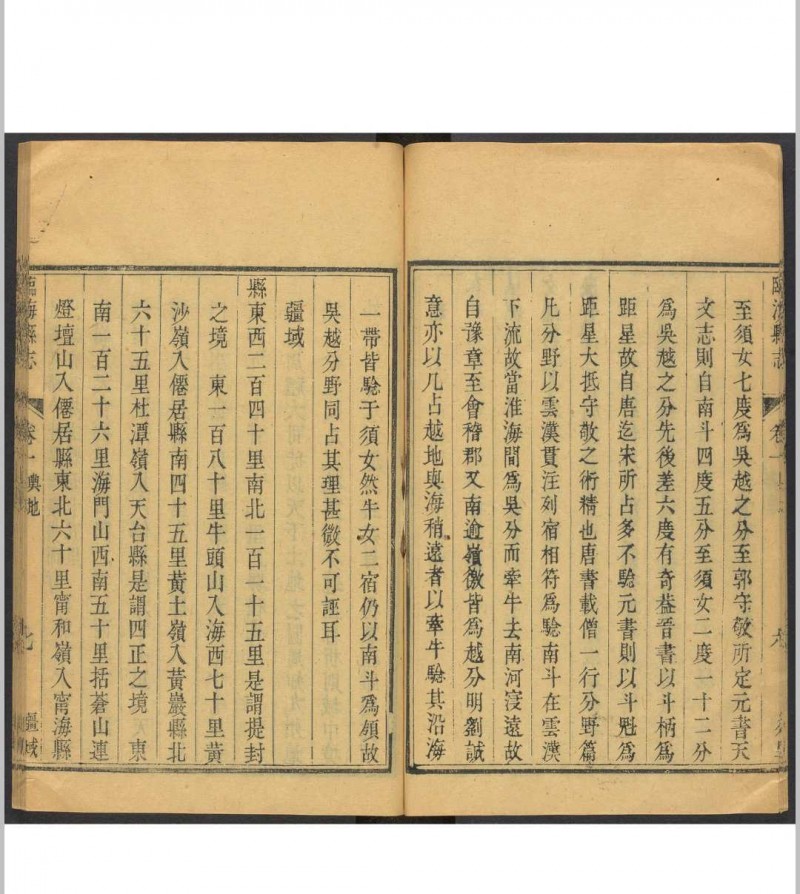 臨海縣志
卷一
至須女七度爲吳越之分至郭守敬所定元書天
文志則自南斗四度五分至須女二度一十二分
爲吳越之分先後差六度有奇葢晉書以斗柄爲
距星故自唐迄宋所占多不騐元書則以斗魁爲
距星大抵守敬之術精也唐書載僧一行分野篇
凡分野以雲漢貫注列宿相符爲騐南斗在雲漢
下流故當淮海間爲吳分而牽牛去南河寖遠故
自豫章至會稽郡又南逾嶺徼皆爲越分明劉誠
意亦以凡占越地與海稍遠者以牽牛騐其沿海
一帶皆騐于須女然牛女二宿仍以南斗爲領故
吳越分野同占其理甚微不可誣耳
疆域
縣東西二百四十里南北一百一十五里是謂提封
之境 東一百八十里牛頭山入海西七十里黃
沙嶺入僊居縣南四十五里黃土嶺入黃巖縣北
六十五里杜潭嶺入天台縣是謂四正之境 東
南一百二十六里海門山西南五十里括蒼山連
燈壇山入僊居縣東北六十里甯和嶺入甯海縣
臨海縣志
卷一 輿地
七
疆域